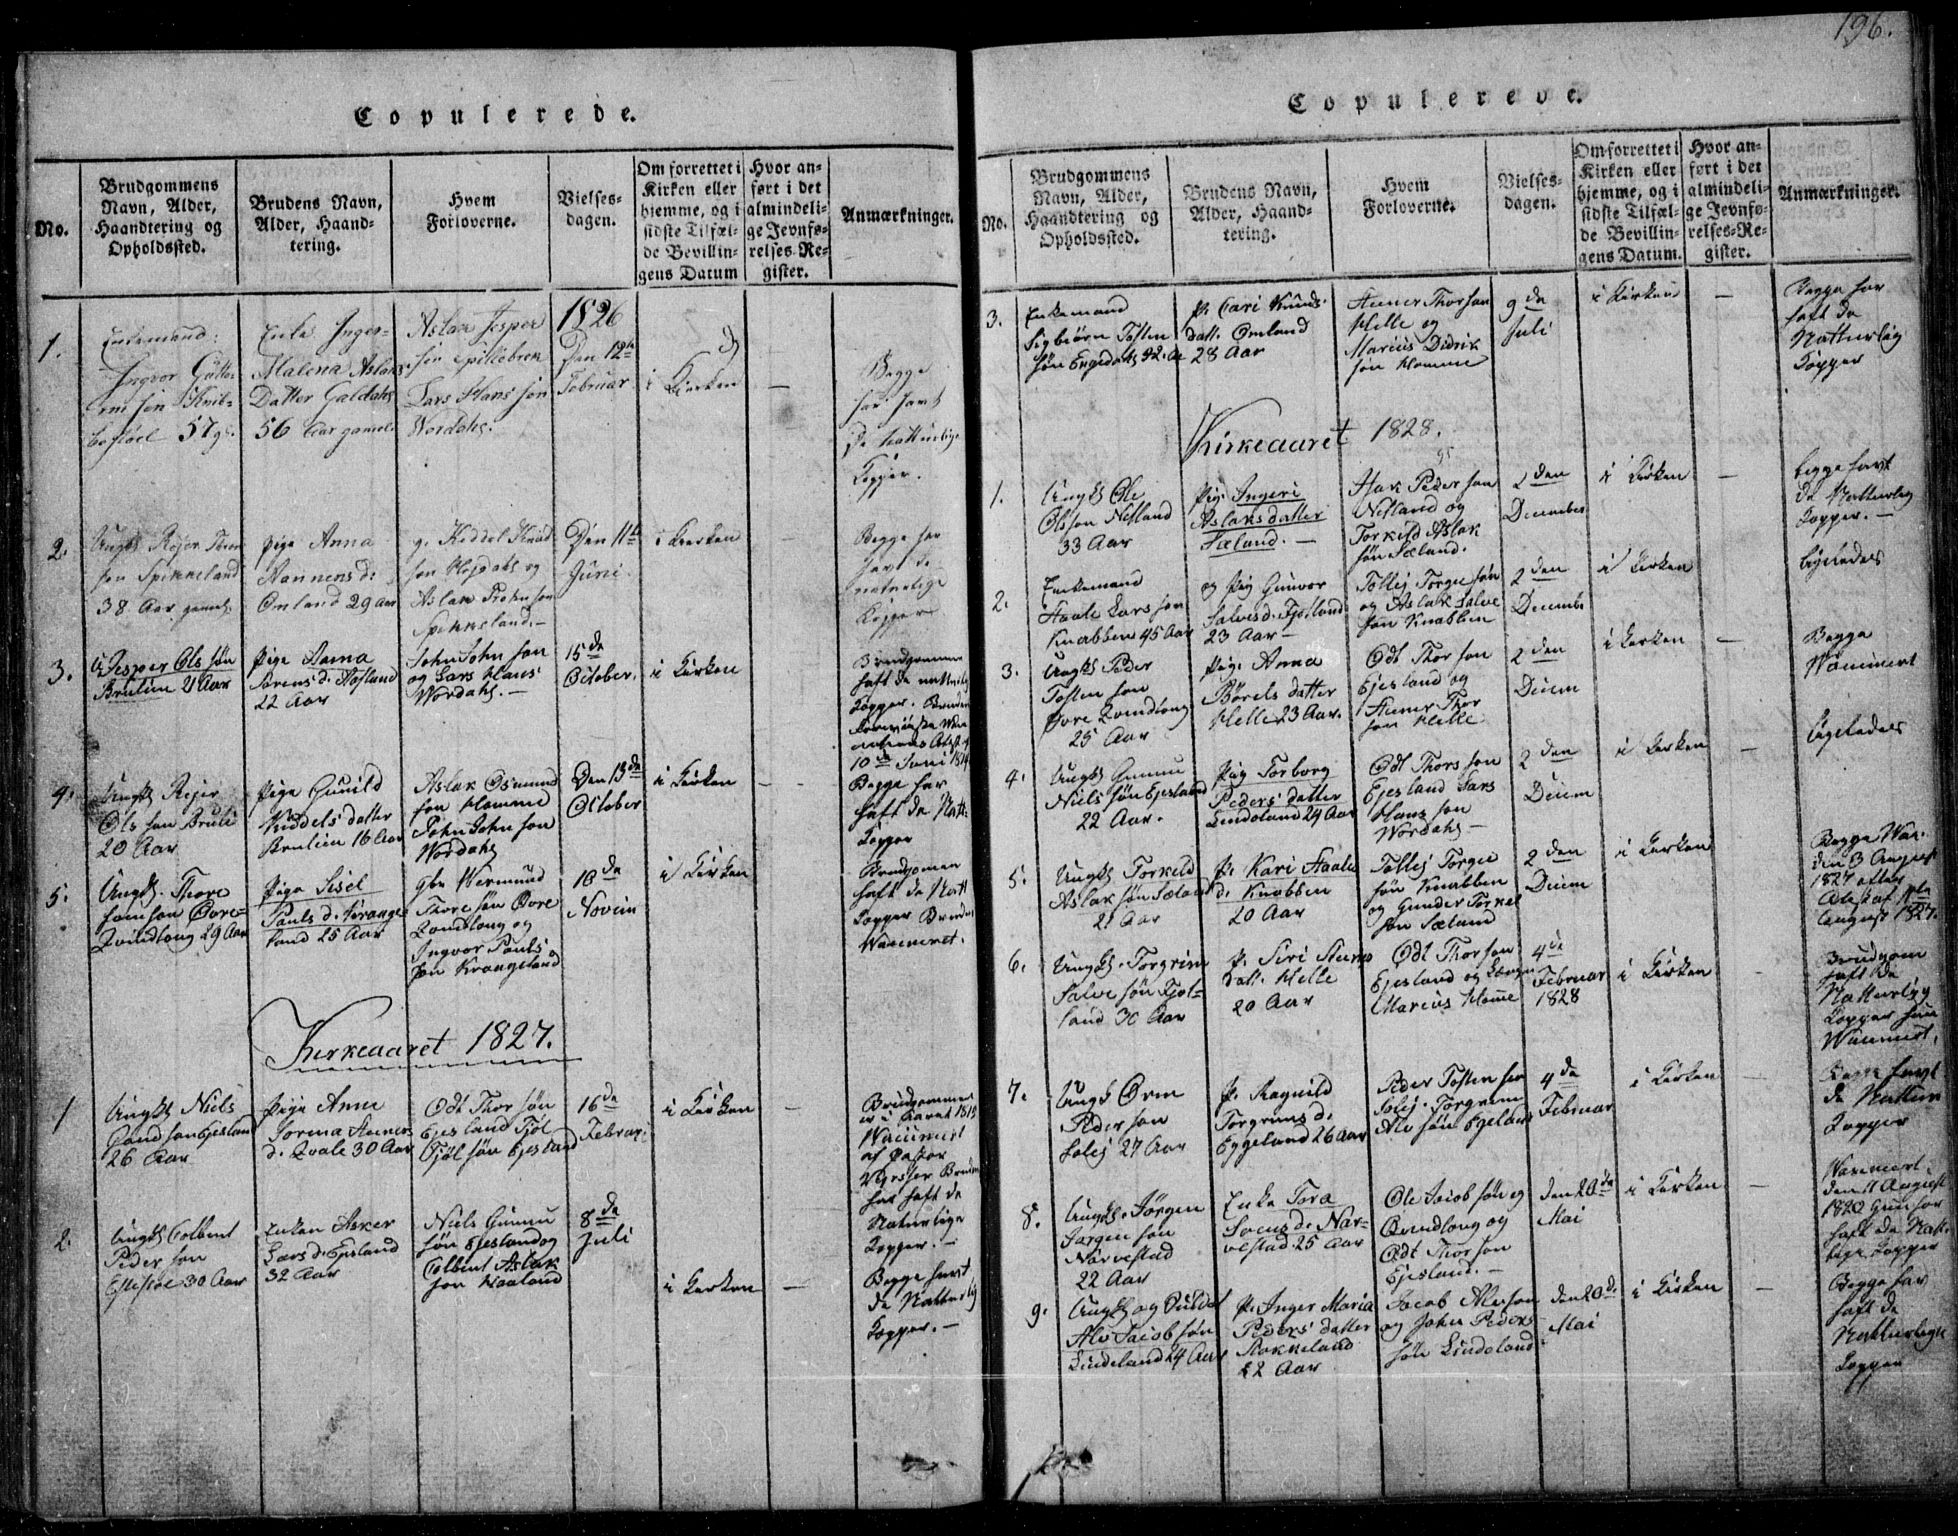 196.
Copulerede.
No.
Brudgommens
Navn, Alder,
Haandtering og
Opholdssted.
Brudens Navn,
Alder, Haand-
tering.
Hvem
Forloverne.
Vielses-
dagen.
Om forrettet i
Kirken eller
hjemme, og i
sidste Tilfæl-
de Bevillin-
gens Datum
Hvor an-
ført i det
almindeli-
ge Jevnfø-
relses-Re-
gister.
Anmærkninger.
1.
Enkemand:
Ingvor
57
Enke Inger
Malena Aslaks
Datter Galdahs
56 Aar gamel
Aslak Jesper
søn
Lars Hans søn
Nordahs.
1826
Den 12te
Februar
i Kirken
—
Begge
har havt
de natturlige
Kopper.
2.
Ungk Rejer
søn Spikkeland
38 Aar gamel
Pige Anna
Aannens d.
Omland 29 Aar
g. Keddel Knud
søn og
Aslak
Spikkeland.-
Den 11te
Juni.
i Kierken
Begge har
havt de
naturlige
Kopper
3.
Jesper Ols søn
Brulien 21 Aar
Pige Anna
Sørens d. Aasland
22 Aar
John John søn
og Lars Hans
Nordahs. —
15de
October.
i Kirken
Brudgommen
haft de natturlig
Kopper. Bruden
10de Juni 1814
4.
Ungk Rejer
Ols søn Bruli
20 Aar
Pige Gunild
Kiddels datter
Brulien 16 Aar
Aslak Osmund
søn Homme
John John søn
Nordahs
Den 13de
October
i Kirken
—
Begge har
haft de Natt.
Kopper
5.
Ungk. Thore
søn Øvre-
Qvindlong 29 Aar
Pige Sisel
Pauls d. Krange
land 25 Aar
Wermund
Thore søn Øvre
og
Ingvor Pauls
søn Krangeland
18de
Novem
i Kirken
Brudgomen
haft de Natt
Kopper Bruden
Waccineret.
Kirkeaaret 1827.
1
Ungk Niels
Ejesland
26 Aar
Pige Anne
d. Qvale 30 Aar
Odt Thor søn
Ejesland Fjøl
søn Ejesland
16de
Februar
i Kirken
—
Brudgommen
er i Aaret 1819
Waccineret
af Pastor
Bruden
har haft de
Naturlige
Kopper. -
2.
Ungk Colbent
Peder søn
30 Aar
Enken Asker
Lars d. Ejesland
32 Aar
Niels Gunnu
søn Ejesland og
Colbent Aslak
søn Haaland
8de
Juli
i Kirken
—
Begge havt
de Natturlig
Kopper. —
Copulerede.
No.
Brudgommens
Navn, Alder,
Haandtering og
Opholdssted.
Brudens Navn,
Alder, Haand-
tering.
Hvem
Forloverne.
Vielses-
dagen.
Om forrettet i
Kirken eller
hjemme, og i
sidste Tilfæl-
de Bevillin-
gens Datum.
Hvor an-
ført i det
almindeli-
ge Jevnfø-
relses-Re-
gister.
Anmærkninger.
3.
Enkemand
Sigbiørn Tosten
søn Engedahs 42. Aa
P. Cari Knuds
datt. Omland
28 Aar
Aaner Thor søn
Helle og
Marcius Didrik
søn Homme
9de
Juli
i Kirken
—
Begge har
haft de
Natturlig
Kopper
Kirkeaaret 1828.
1.
Ungk Ole
Olsson Netland
33 Aar
Pig. Ingeri
Aslaksdatter
Sæland. —
Hak Peder søn
Netland og
Torkild Aslak
søn Sæland.
2den
December
i Kirken
—
begge havt
de Natturlig
Kopper. —
2.
Enkemand
Haale Lars søn
Knabben 45 Aar
og Pig Gunvor
Salves d. Fjotland
23 Aar —
Tollej Torge søn
og Aslak Salve
søn Knabben
2den
Decembe
i Kirken
ligeledes
3.
Ungk Peder
Tosten søn
Øvre Qvindlong
25 Aar
Pig. Anna
Børels datter
Helle 23 Aar.
Odt Thor søn
Ejesland og
Aaner Thor
søn Helle
2den
Decem
i Kirken
—
Begge
Waccineret
4.
Ungk Gunnu
Niels søn Ejesland
22 Aar.
Pig Torborg
Peders datter
Lindeland 24 Aar
Odt Thors søn
Ejesland Lars
Hans søn
Nordahs —
2den
Decem
i Kirken
—
ligeledes
5.
Ungk Torkild
Aslak søn Sæland
21 Aar
P. Kari Haale
d. Knabben
20 Aar
Tollej Torge
søn Knabben
og Gunder Torkel
søn Sæland
2den
Decem
i Kirken
Begge Wac.
den 3 August
1827 efter
Atest af 11te
August 1827.
6.
Ungk. Torgrim
Salve søn Fjot-
land 30 Aar
P. Siri Aanno
datt. Helle
20 Aar
Odt Thor søn
Ejesland og
Marcius Homme
4de
Februar
1828
i Kirken
—
Brudgom
haft de
Natturlig
Kopper hun
Waccinert.
7.
Ungk Orm
Peder søn
Solej 27 Aar
P. Ragnild
Torgrims d.
Eggeland 26 Aar
Peder Tosten søn
Solej. Torgrim
Alv søn Egeland
4de
Februar
i Kirken
havt
de Nattur
Kopper
8.
Ungk. Jørgen
Jørgen søn
Narvestad
22 Aar
Enke Tora
d. Nar-
vestad. 25 Aar
Ole Jacob søn
Qvindlong og
Odt Thor søn
Ejesland. —
den 20de
Mai
i Kirken
Waccinert
den 11 August
1820 hun har
haft de Natt-
lige Kopper
9.
Ungk og Soldat
Alv Jacob søn
Lindeland 24 Aar
P. Inger Maria
Peders datter
Stakkeland
22 Aar
Jacob Alv søn
og John Peders
søn Lindeland
den 20de
Mai
i Kirken
Begge har
haft de
Natturlige
Kopper